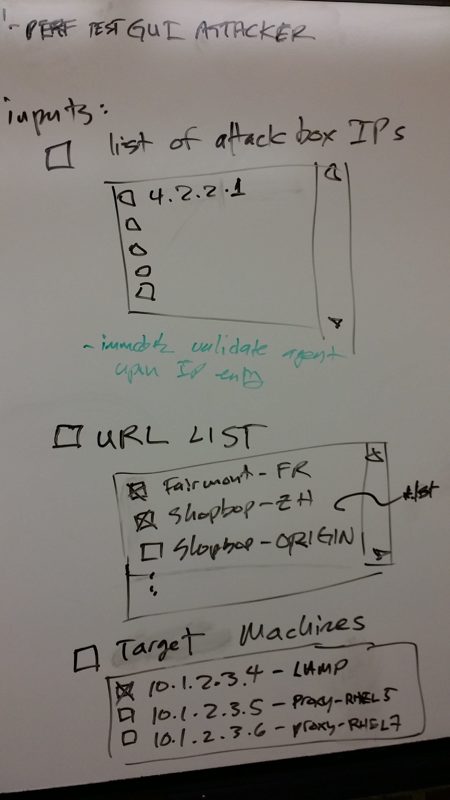 - PERF TEST GUI ATTACKER
inputs:
list of attack box IPs
4.2.2.1
- validate agent
upon IP entry
URL LIST
Fairmont - FR
Shopbop - ZH
Shopbop - ORIGIN
Target Machines
10.1.2.3.4 - LAMP
10.1.2.3.5 - Proxy-RHEL5
10.1.2.3.6 - proxy-RHEL7